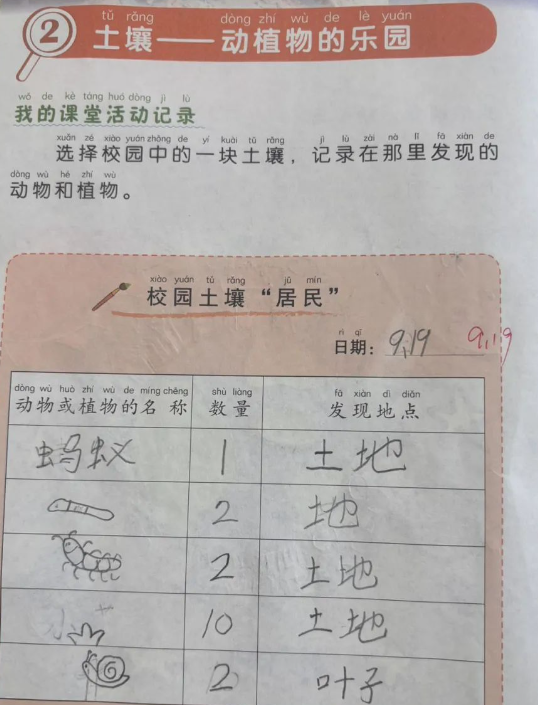 tǔ rǎng dòng zhí wù de lè yuán
2 土壤——动植物的乐园
wǒ de kè táng huó dòng jì lù
我的课堂活动记录
xuǎn zé xiào yuán zhōng de yí kuài tǔ rǎng jì lù zài nà lǐ fā xiàn de
选择校园中的一块土壤，记录在那里发现的
dòng wù hé zhí wù
动物和植物。
xiào yuán tǔ rǎng jū mín
校园土壤“居民”
rì qī
日期：9,19 9,19
dòng wù huò zhí wù de míng chēng shù liàng fā xiàn dì diǎn
动物或植物的名称 数量 发现地点
蚂蚁 1 土地
2 地
2 土地
小艹 10 土地
2 叶子